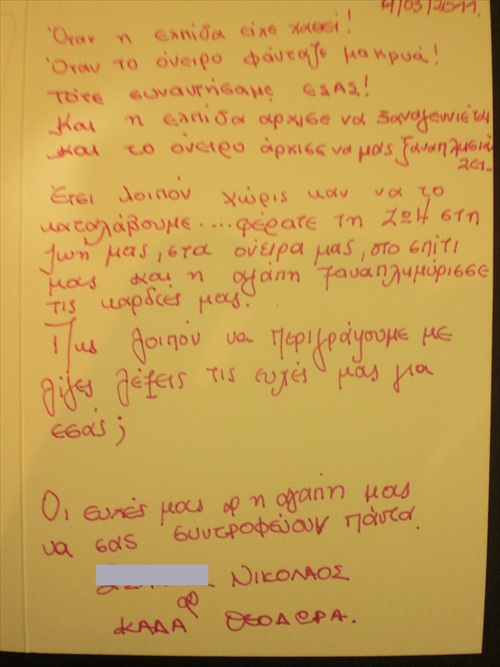 4/03/2011.
Όταν η ελπίδα είχε χαθεί!
Όταν το όνειρο φάνταζε μακρυά!
Τότε συναντήσαμε ΕΣΑΣ!
και η ελπίδα άρχισε να ξαναγεννιέται
και το όνειρο άρχισε να μας ξαναπλησιά
ζει.
Έτσι λοιπόν χωρίς καν να το
καταλάβουμε....φέρατε τη ΖΩΗ στη
ζωή μας, στα όνειρα μας, στο σπίτι
μας και η αγάπη ξαναπλημύρισσε
τις καρδιές μας.
Πως λοιπόν να περιγράψουμε με
λίγες λέξεις τις ευχές μας για
εσάς;
Οι ευχές μας & η αγάπη μας
να σας συντροφεύουν πάντα.
ΝΙΚΟΛΑΟΣ
&
ΚΑΔΑ ΘΕΟΔΩΡΑ.